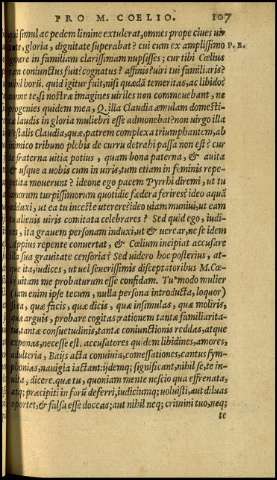 PRO M. COELIO. 107
qui simul ac pedem limine extulerat, omnes prope ciues vir-
, gloria, dignitate superabat? cui cum ex amplissimo P. R.
genere in familiam clarissimam nupsisses; cur tibi Cœlius
tam coniunctus fuit? cognatus? affinis? viri tui familiaris?
nihil horū. quid igitur fuit, nisi quædā temeritas, ac libido?
nonne te, si nostræ imagines viriles non commouebant, ne
progenies quidem mea, Q. illa Claudia æmulam domesti-
laudis in gloria muliebri esse admonebat? non virgo illa
Vestalis Claudia, quæ patrem complexa triumphantem, ab
inimico tribuno plebis de curru detrahi passa non est? cur
te fraterna vitia potius, quam bona paterna, & auita
& usque a nobis cum in viris, tum etiam in feminis repe-
tita mouerunt? ideone ego pacem Pyrrhi diremi, ut tu
amorum turpissimorum quotidie fœdera ferires? ideo aquā
adduxi, ut ea tu inceste vterere? ideo viam muniui, ut eam
alienis viris comitata celebrares? Sed quid ego, iudi-
, ita grauem personam induxi, ut & verear, ne se idem
Appius repente conuertat, & Cœlium incipiat accusare
illa sua grauitate censoria? Sed videro hoc posterius, at-
que ita, iudices, vt vel seuerissimis disceptatoribus M. Cœ-
vitam me probaturum esse confidam. Tu modo mulier
(iam enim ipse tecum, nulla persona introducta, loquor)
, quæ facis, quæ dicis, quæ insimulas, quæ moliris,
quæ arguis, probare cogitas; rationem tantæ familiarita-
, tantæ consuetudinis, tantæ coniunctionis reddas, atque
exponas, necesse est. accusatores quidem libidines, amores,
adulteria, Baijs, acta, conuiuia, comessationes, cantus, sym-
phonias, nauigia iactant: ijdemq; significant, nihil se, te in-
uita, dicere. quæ tu, quoniam mente nescio qua effrenata,
atq; præcipiti in forū deferri, iudiciumq; voluisti, aut diluas
oportet, & falsa esse doceas; aut nihil neq; crimini tuo, neq;
te